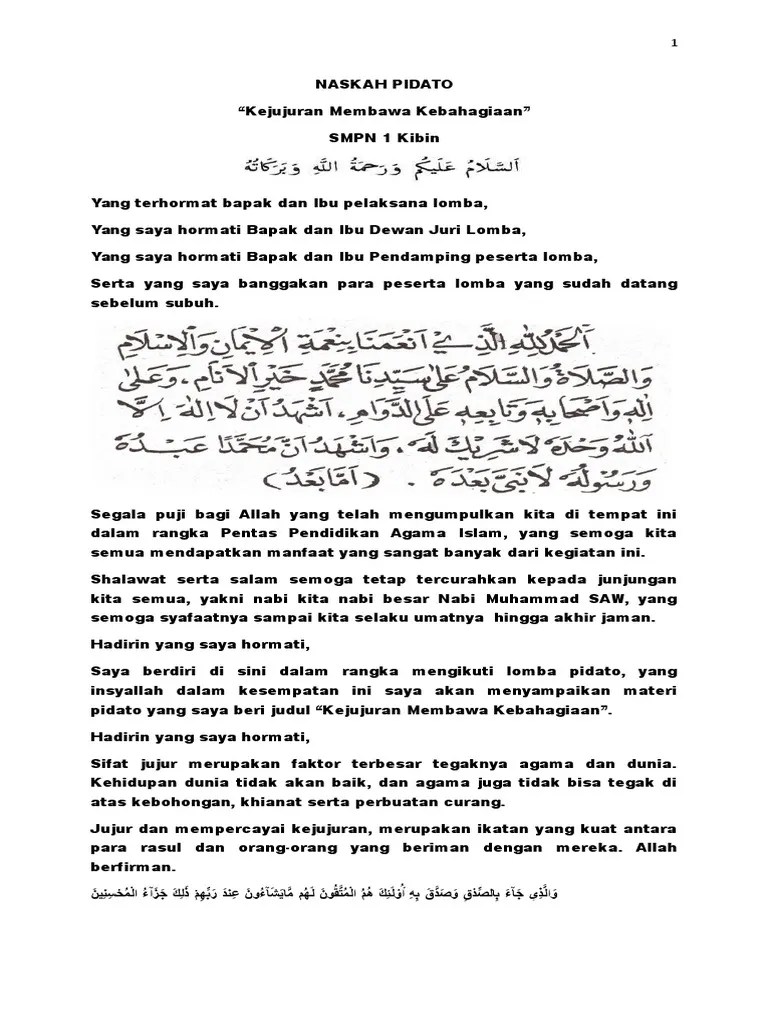 1
NASKAH PIDATO
“Kejujuran Membawa Kebahagiaan”
SMPN 1 Kibin
اَلسَّلَامُ عَلَيْكُمْ وَرَحْمَةُ اللَّهِ وَبَرَكَاتُهُ
Yang terhormat bapak dan Ibu pelaksana lomba,
Yang saya hormati Bapak dan Ibu Dewan Juri Lomba,
Yang saya hormati Bapak dan Ibu Pendamping peserta lomba,
Serta yang saya banggakan para peserta lomba yang sudah datang
sebelum subuh.
اَلْحَمْدُ لِلّٰهِ الَّذِيْ اَنْعَمَنَا بِنِعْمَةِ الْاِيْمَانِ وَالْاِسْلَامِ
وَالصَّلَاةُ وَالسَّلَامُ عَلٰى سَيِّدِنَا مُحَمَّدٍ خَيْرِ الْاَنَامِ، وَعَلٰى
اٰلِهٖ وَاَصْحَابِهٖ وَتَابِعِهٖ عَلَى الدَّوَامِ، اَشْهَدُ اَنْ لَا اِلٰهَ اِلَّا
اللّٰهُ وَحْدَهُ لَا شَرِيْكَ لَهُ، وَاَشْهَدُ اَنَّ مُحَمَّدًا عَبْدُهُ
وَرَسُوْلُهُ لَا نَبِيَّ بَعْدَهُ . (اَمَّا بَعْدُ)
Segala puji bagi Allah yang telah mengumpulkan kita di tempat ini
dalam rangka Pentas Pendidikan Agama Islam, yang semoga kita
semua mendapatkan manfaat yang sangat banyak dari kegiatan ini.
Shalawat serta salam semoga tetap tercurahkan kepada junjungan
kita semua, yakni nabi kita nabi besar Nabi Muhammad SAW, yang
semoga syafaatnya sampai kita selaku umatnya hingga akhir jaman.
Hadirin yang saya hormati,
Saya berdiri di sini dalam rangka mengikuti lomba pidato, yang
insyallah dalam kesempatan ini saya akan menyampaikan materi
pidato yang saya beri judul “Kejujuran Membawa Kebahagiaan”.
Hadirin yang saya hormati,
Sifat jujur merupakan faktor terbesar tegaknya agama dan dunia.
Kehidupan dunia tidak akan baik, dan agama juga tidak bisa tegak di
atas kebohongan, khianat serta perbuatan curang.
Jujur dan mempercayai kejujuran, merupakan ikatan yang kuat antara
para rasul dan orang-orang yang beriman dengan mereka. Allah
berfirman.
وَالَّذِي جَآءَ بِالصِّدْقِ وَصَدَّقَ بِهِ أُوْلَئِكَ هُمُ الْمُتَّقُونَ لَهُم مَّايَشَآءُونَ عِندَ رَبِّهِمْ ذَلِكَ جَزَآءُ الْمُحْسِنِينَ